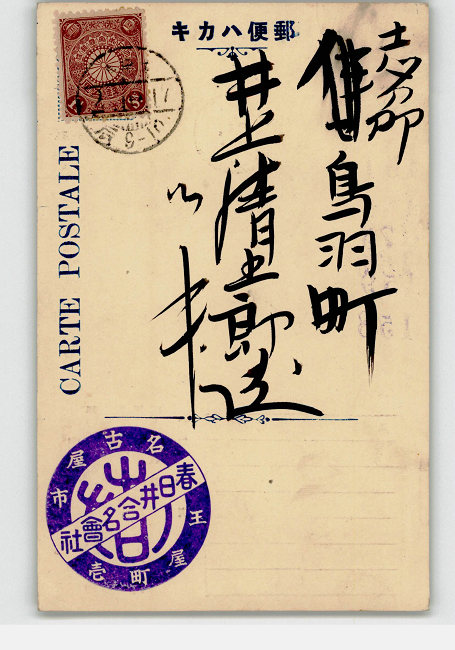 郵便ハカキ
鳥羽町
井上清五郎
CARTE POSTALE
名古屋市
玉屋町壱
春日井合名會社